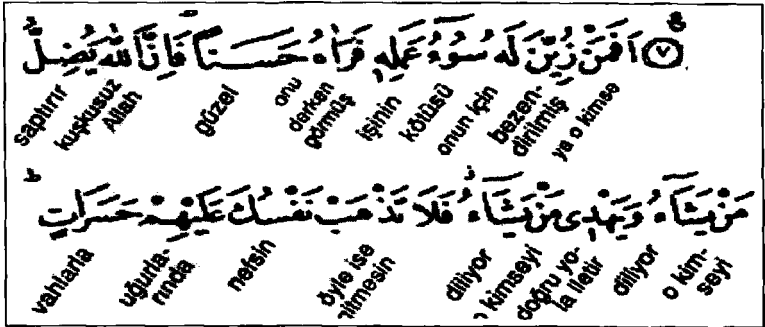 ٧ اَفَمَنْ زُيِّنَ لَهُ سُوٓءُ عَمَلِهٖ فَرَاٰهُ حَسَنًا فَاِنَّ اللّٰهَ يُضِلُّ
ya o kimse bezen-
dirilmiş onun için kötüsü işinin onu
derken
görmüş güzel kuşkusuz
Allah saptırır
مَنْ يَشَٓاءُ وَيَهْدٖى مَنْ يَشَٓاءُ فَلَا تَذْهَبْ نَفْسُكَ عَلَيْهِمْ حَسَرَاتٍ
o kim-
seyi diliyor doğru yo-
la iletir kimseyi diliyor öyle ise
itmesin nefsin uğurla-
rında vahlarla